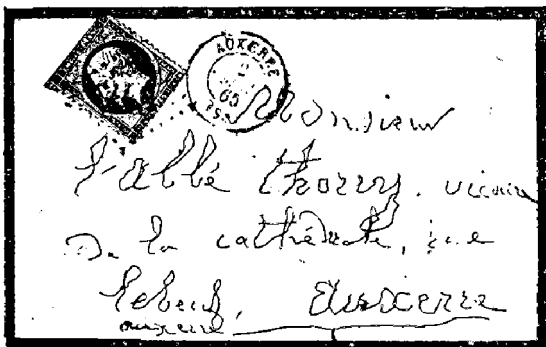 AUXERRE
2
60
Monsieur
l'abbé thorry, vicaire
De la cathédrale, rue
lebeuf, Auxcerre
auxerre